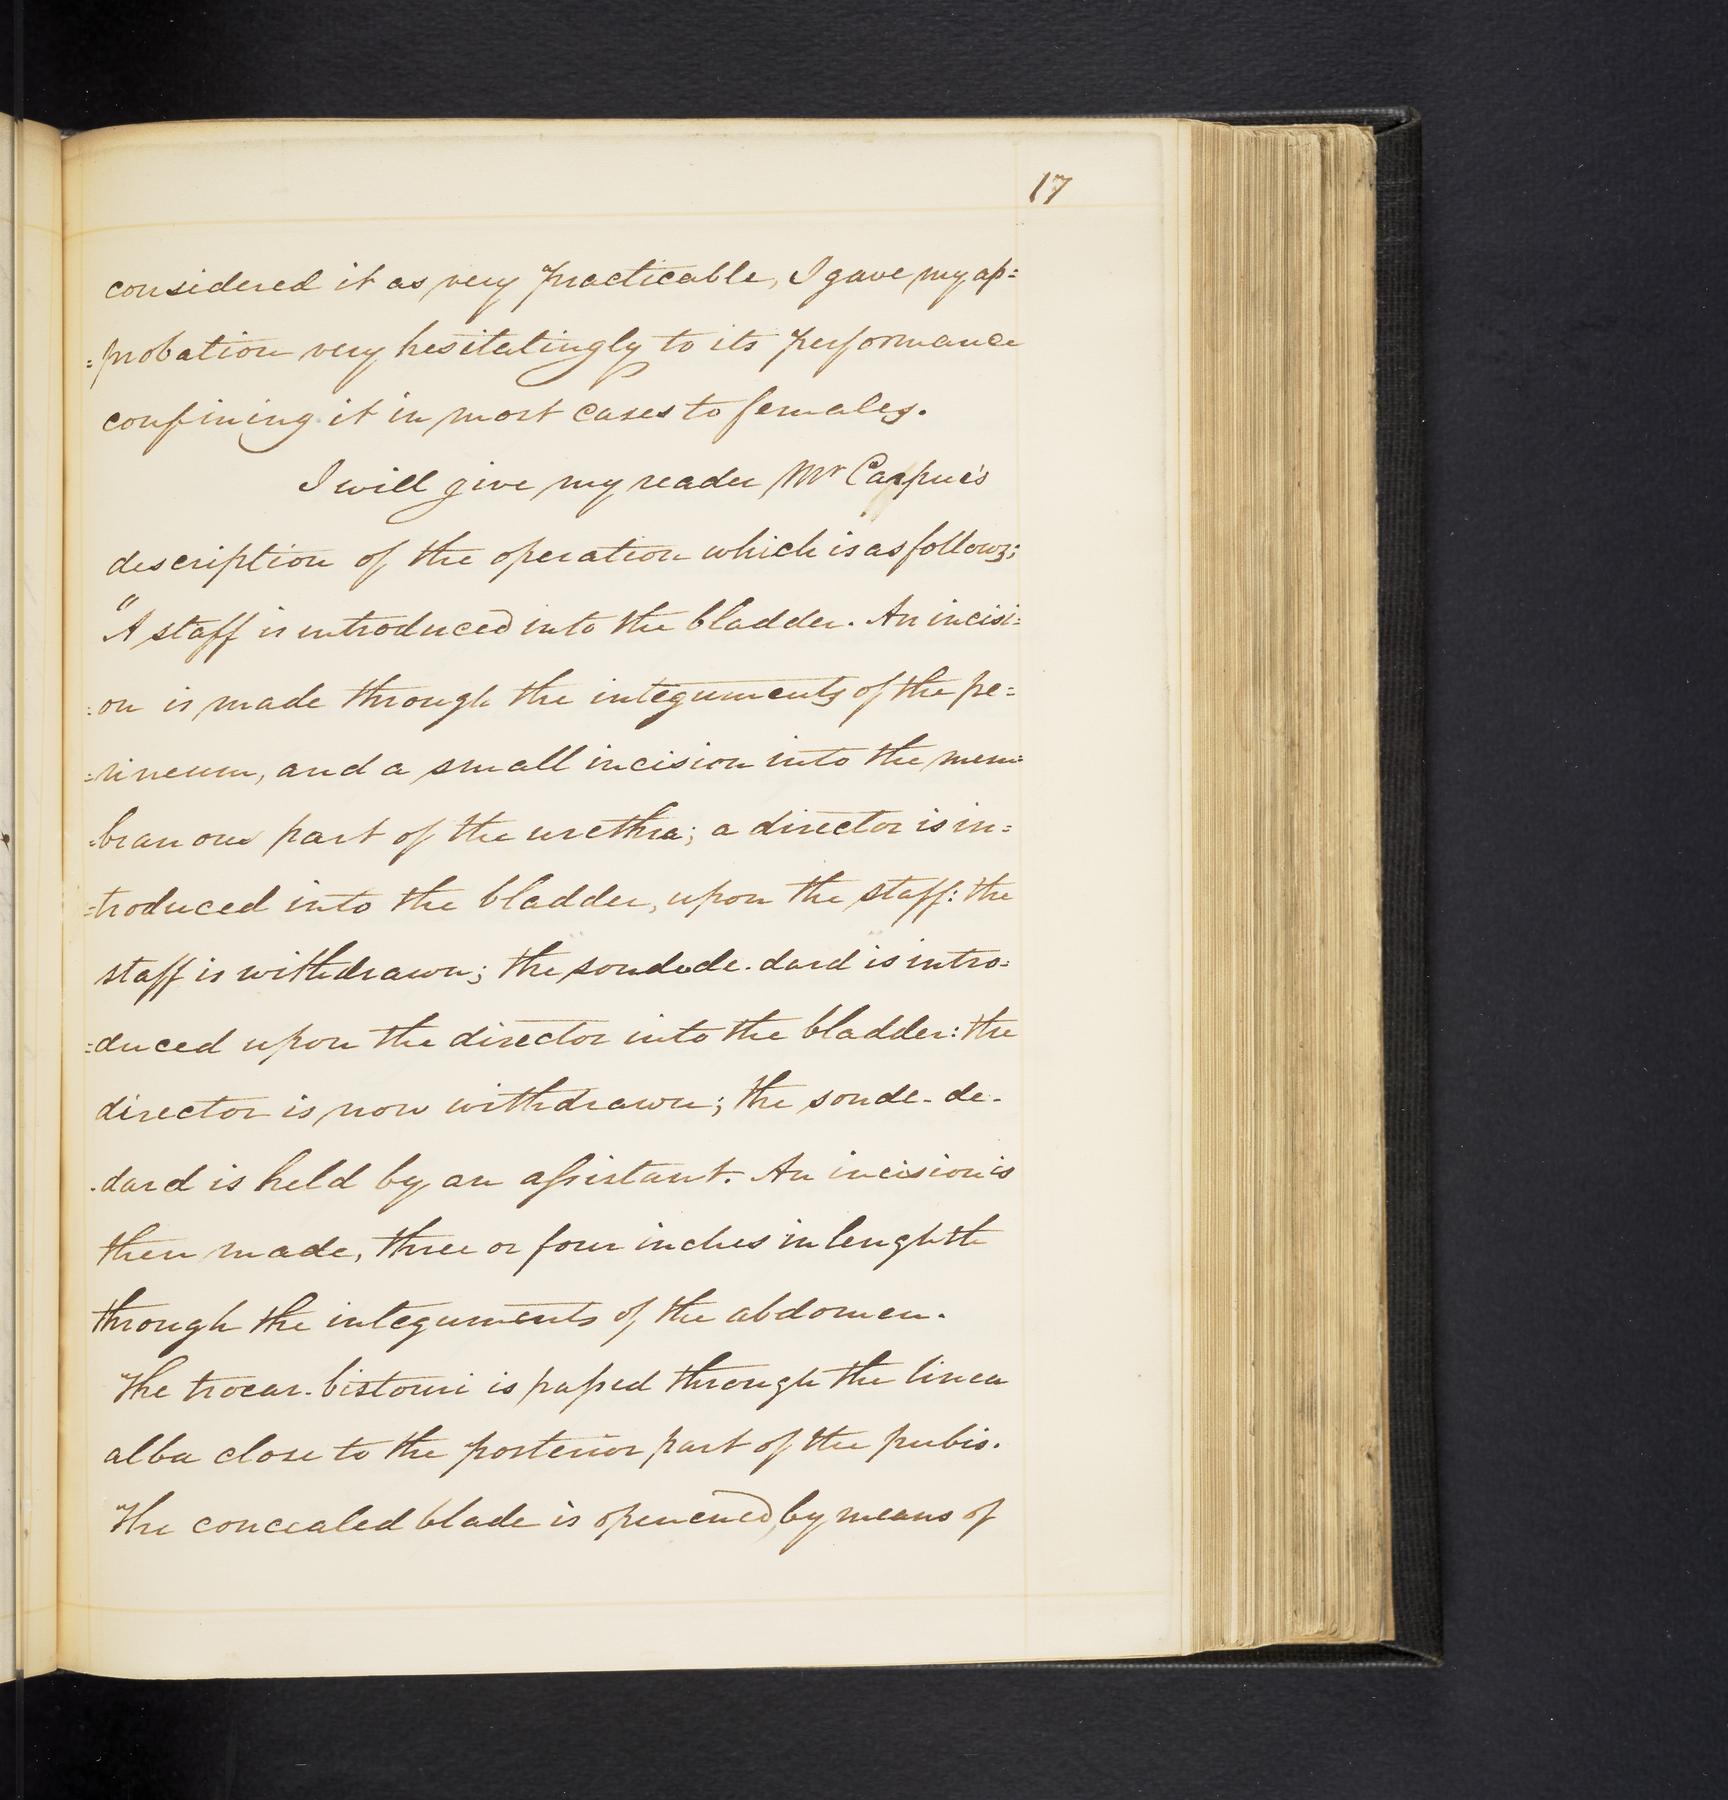 17
considered it as very practicable, I gave my ap=
=probation very hesitatingly to its performance
confining it in most cases to females.
I will give my reader Mr Carpue's
description of the operation which is as follows;
"A staff is introduced into the bladder. An incisi=
=on is made through the integuments of the pe=
=rineum, and a small incision into the mem=
=branous part of the urethra; a director is in=
=troduced into the bladder, upon the staff: the
staff is withdrawn; the sonde de-dard is intro=
=duced upon the director into the bladder: the
director is now withdrawn; the sonde-de-
-dard is held by an assistant. An incision is
then made, three or four inches in lenghth
through the integuments of the abdomen.
The trocar-bistouri is passed through the linea
alba close to the posterior part of the pubis.
The concealed blade is openened, by means of